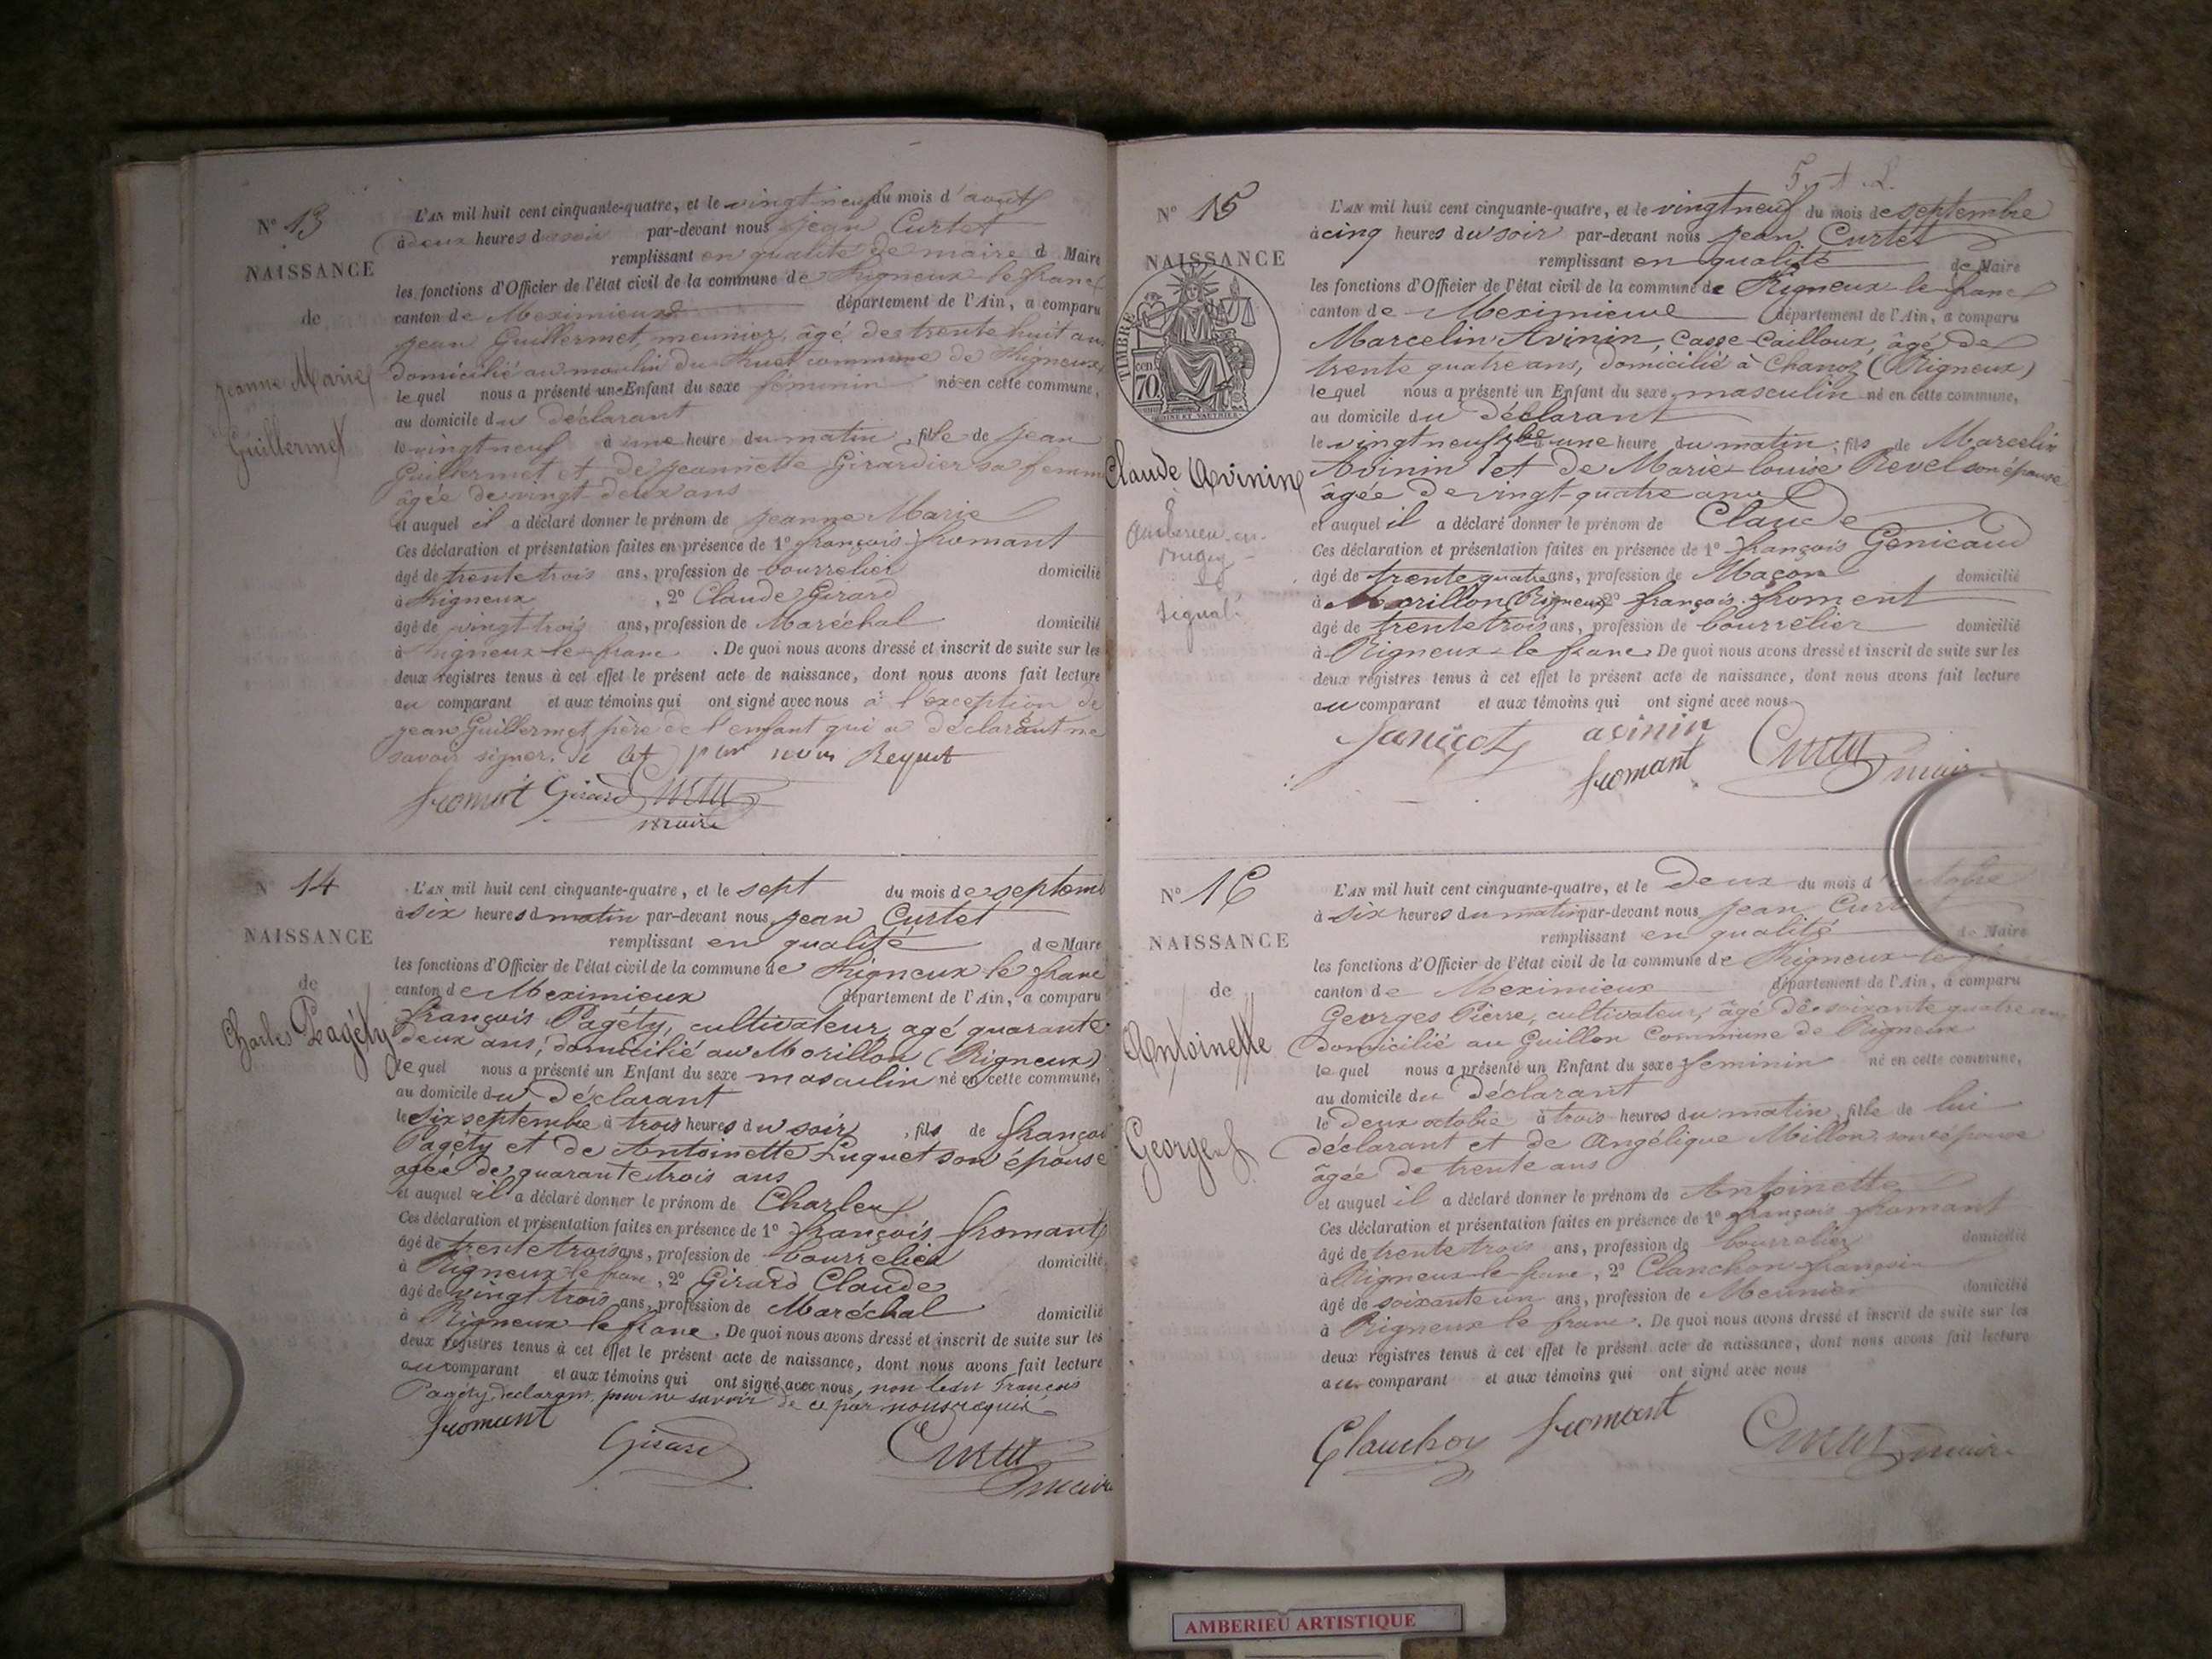 N° 13
NAISSANCE
de
Jeanne Marie
Guillermet
L'AN mil huit cent cinquante-quatre, et le vingt neuf du mois d'août
à deux heures du soir par-devant nous Jean Curtet
remplissant en qualité de maire d Maire
les fonctions d'Officier de l'état civil de la commune de Rigneux le franc
canton de Meximieux département de l'Ain, a comparu
Jean Guillermet, meunier, âgé de trente huit ans
domicilié au moulin du commune de Rigneux
lequel nous a présenté une Enfant du sexe féminin née en cette commune,
au domicile du déclarant
le vingt neuf à une heure du matin, fille de Jean
Guillermet et de Jeannette Girardier sa femme
âgée de vingt deux ans
et auquel il a déclaré donner le prénom de Jeanne Marie
Ces déclaration et présentation faites en présence de 1° françois fromant
âgé de trente trois ans, profession de bourrelier domicilié
à Rigneux , 2° Claude Girard
âgé de vingt trois ans, profession de Maréchal domicilié
à Rigneux-le-franc . De quoi nous avons dressé et inscrit de suite sur les
deux registres tenus à cet effet le présent acte de naissance, dont nous avons fait lecture
au comparant et aux témoins qui ont signé avec nous à l'exception de
Jean Guillermet père de l'enfant qui a déclarant ne
savoir signer, de par nous Requit
fromant Girard Curtet
maire
N 14
NAISSANCE
de
Charles Pagéty
L'AN mil huit cent cinquante-quatre, et le sept du mois de septemb
à six heures d matin par-devant nous Jean Curtet
remplissant en qualité de Maire
les fonctions d'Officier de l'état civil de la commune de Rigneux le franc
canton de Meximieux département de l'Ain, a comparu
françois Pagéty, cultivateur, agé quarante
deux ans, domicilié au Morillon (Rigneux)
lequel nous a présenté un Enfant du sexe masculin né en cette commune,
au domicile du déclarant
le six septembre à trois heures du soir, fils de françois
Pagéty et de Antoinette Luquet son épouse
agée de quarante trois ans
et auquel il a déclaré donner le prénom de Charles
Ces déclaration et présentation faites en présence de 1° françois fromant
âgé de trente trois ans, profession de bourrelier domicilié
à Rigneux le franc, 2° Girard Claude
âgé de vingt trois ans, profession de Maréchal domicilié
à Rigneux le franc. De quoi nous avons dressé et inscrit de suite sur les
deux registres tenus à cet effet le présent acte de naissance, dont nous avons fait lecture
au comparant et aux témoins qui ont signé avec nous, non ledit François
Pagéty, déclarant, pour ne savoir de ce par nous requis
fromant
Girard
Curtet
maire
N° 15
NAISSANCE
TIMBRE
70 cen.
Claude Avinin
Ambérieu-en-
Bugey
signal
L'AN mil huit cent cinquante-quatre, et le vingt neuf du mois de septembre
à cinq heures du soir par-devant nous Jean Curtet
remplissant en qualité de Maire
les fonctions d'Officier de l'état civil de la commune de Rigneux-le-franc
canton de Meximieux département de l'Ain, a comparu
Marcelin Avinin, Casse-Cailloux, âgé de
trente quatre ans, domicilié à Chanoz (Rigneux)
lequel nous a présenté un Enfant du sexe masculin né en cette commune,
au domicile du déclarant
le vingt neuf 7bre à une heure du matin; fils de Marcelin
Avinin et de Marie-louise Revel son épouse
âgée de vingt-quatre ans
et auquel il a déclaré donner le prénom de Claude
Ces déclaration et présentation faites en présence de 1° françois Genicaud
âgé de trente quatre ans, profession de Maçon domicilié
à Morillon (Rigneux) 2° françois froment
âgé de trente trois ans, profession de bourrelier domicilié
à Rigneux-le franc. De quoi nous avons dressé et inscrit de suite sur les
deux registres tenus à cet effet le présent acte de naissance, dont nous avons fait lecture
au comparant et aux témoins qui ont signé avec nous
avinin
fromant
Curtet maire
N° 16
NAISSANCE
de
Antoinette
Georges
L'AN mil huit cent cinquante-quatre, et le deux du mois d'octobre
à six heures du matin par-devant nous Jean Curtet
remplissant en qualité de Maire
les fonctions d'Officier de l'état civil de la commune de Rigneux-le
canton de Meximieux département de l'Ain, a comparu
Georges Pierre, cultivateur, âgé de soixante quatre ans
domicilié au Guillon Commune de Rigneux
lequel nous a présenté un Enfant du sexe feminin né en cette commune,
au domicile du déclarant
le deux octobre à trois heures du matin, fille de lui
déclarant et de Angélique Millon, son épouse
âgée de trente ans
et auquel il a déclaré donner le prénom de Antoinette
Ces déclaration et présentation faites en présence de 1° françois fromant
âgé de trente trois ans, profession de bourrelier domicilié
à Rigneux-le-franc, 2° Clanchon françois
âgé de soixante un ans, profession de Meunier domicilié
à Rigneux le franc. De quoi nous avons dressé et inscrit de suite sur les
deux registres tenus à cet effet le présent acte de naissance, dont nous avons fait lecture
au comparant et aux témoins qui ont signé avec nous
Clanchon fromant Curtet maire
AMBERIEU ARTISTIQUE